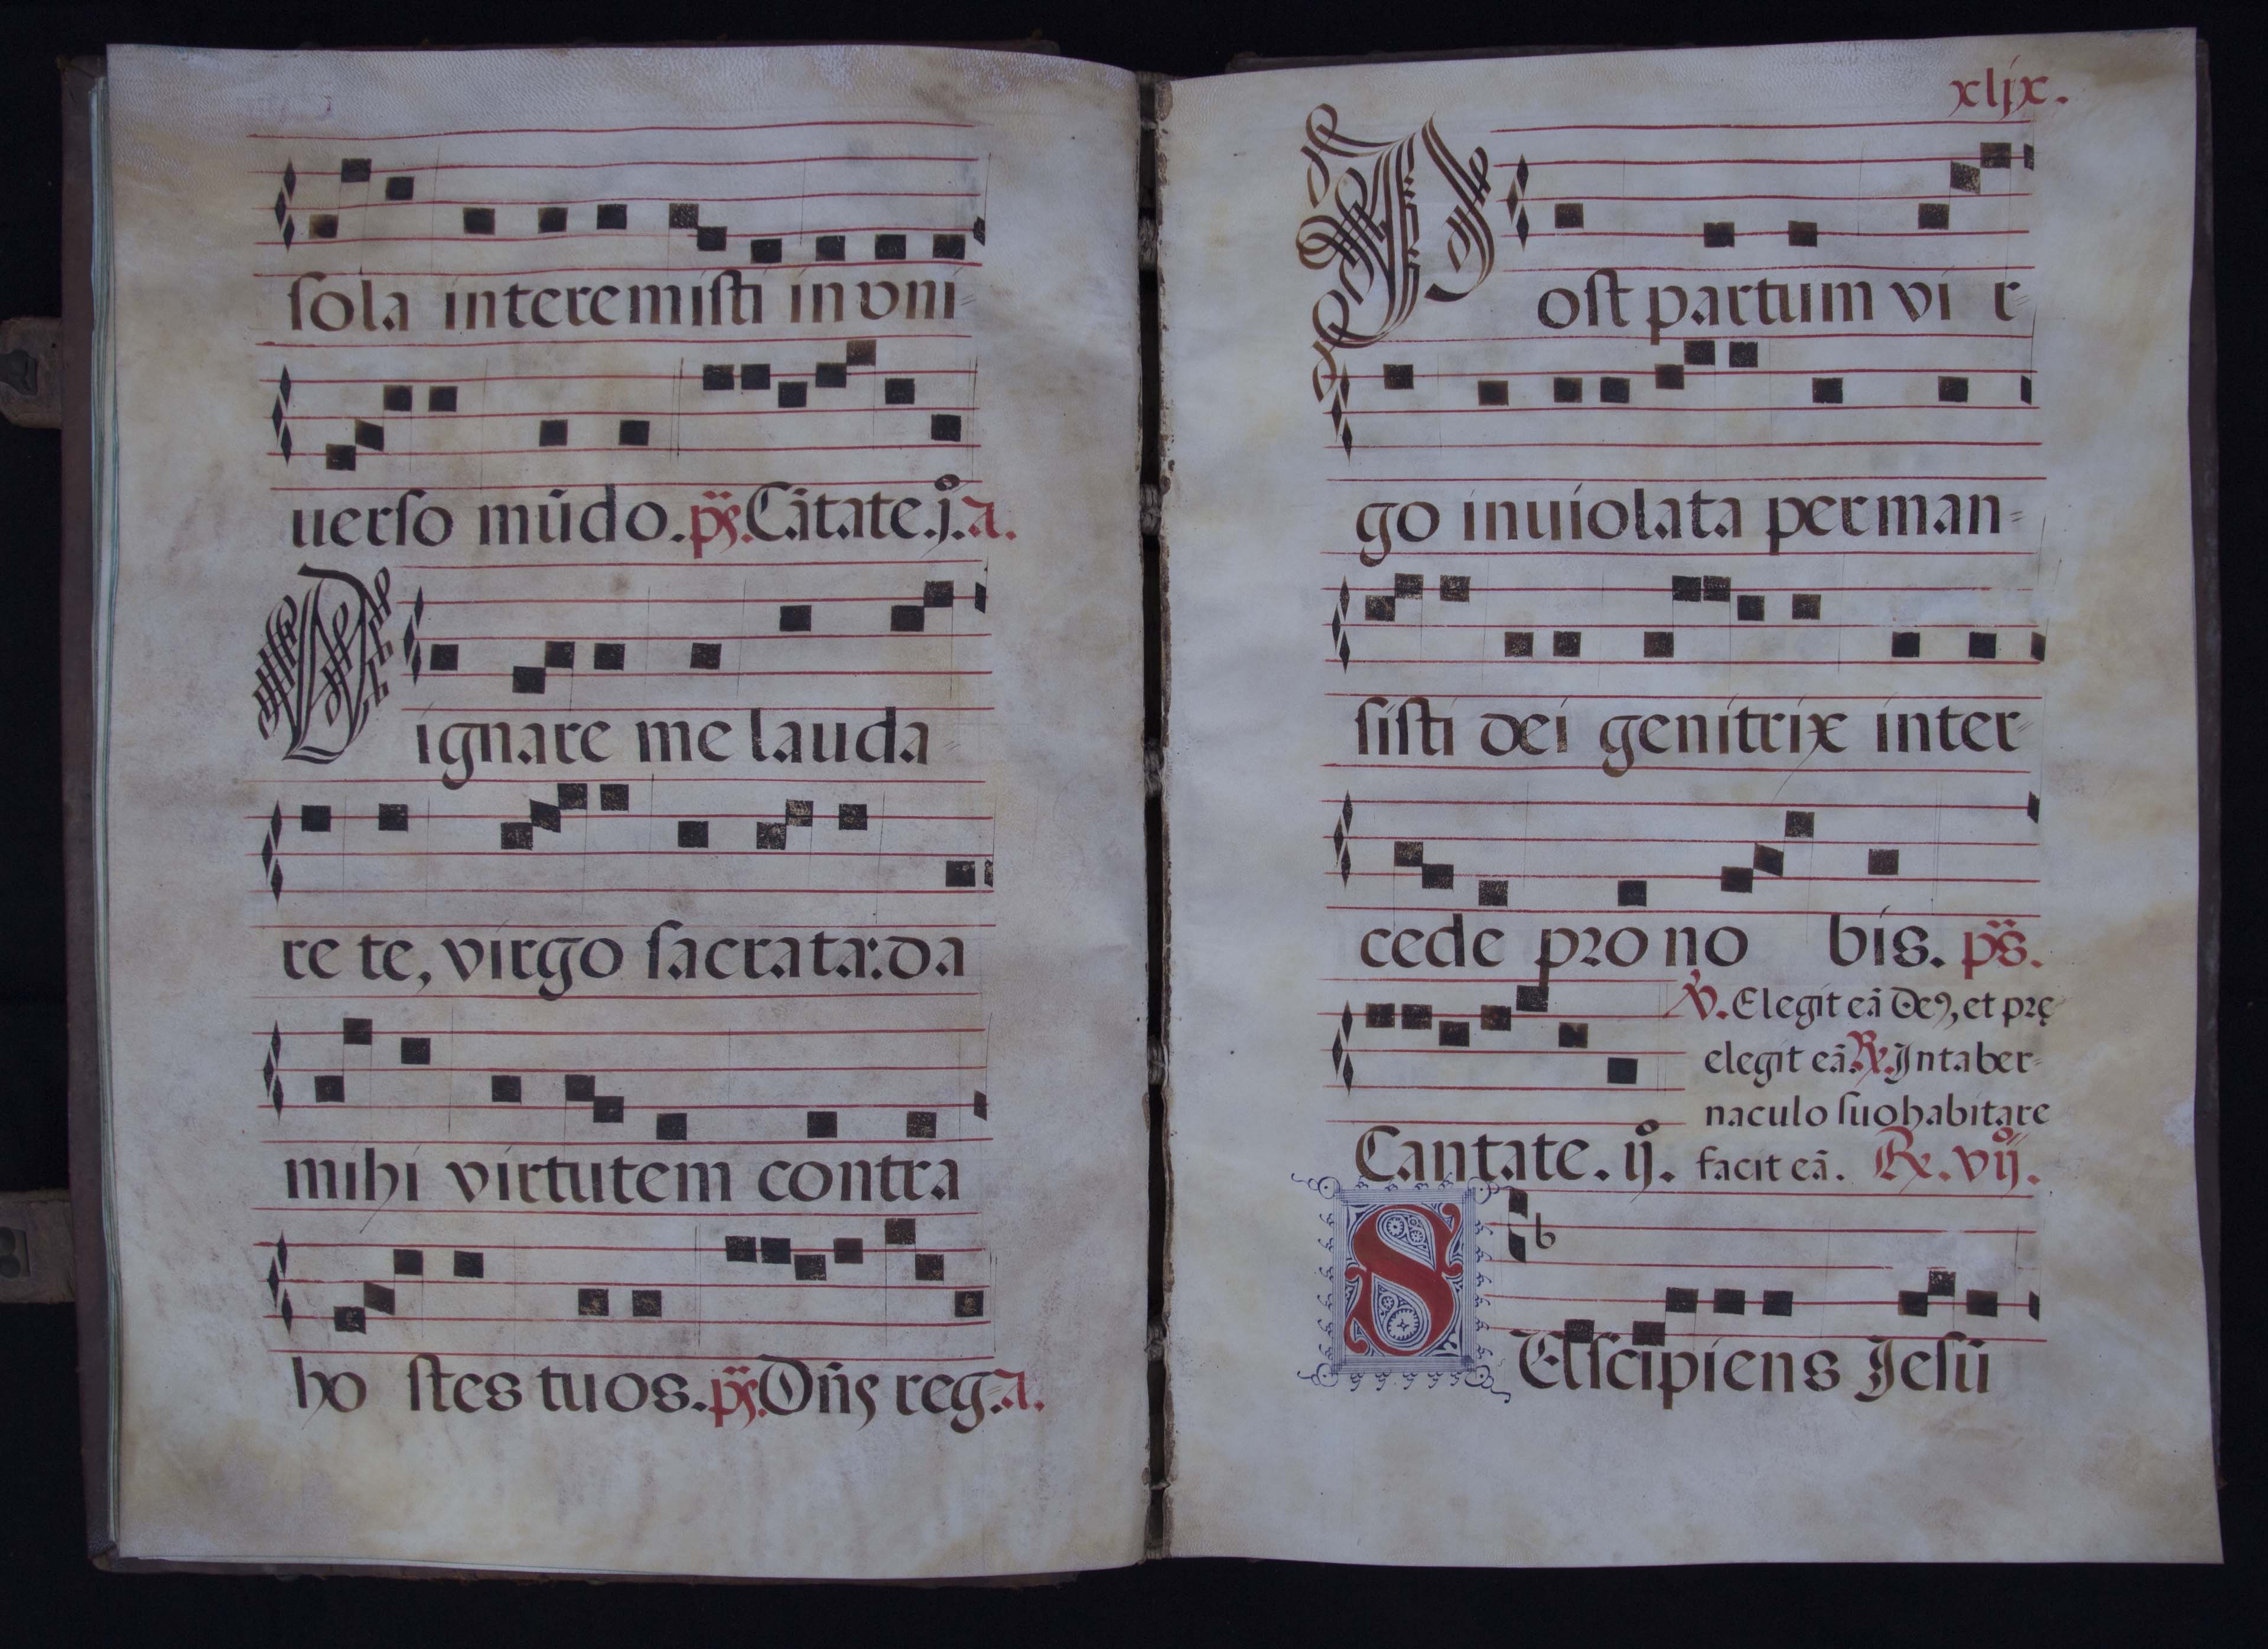 sola interemisti in vni=
uerso mūdo. ps. Cātate. j.º a.
Dignare me lauda=
re te, virgo sacrata: da
mihi virtutem contra
ho stes tuos. ps. Dñs reg. a.
xljx.
Post partum vi r=
go inuiolata perman=
sisti dei genitrix inter=
cede pro no bis. ps.
℣. Elegit eā Deꝰ, et prę
elegit eā. ℟. In taber=
naculo suo habitare
Cantate. ij.º facit eā. ℟. vij.º
SVscipiens Jesū